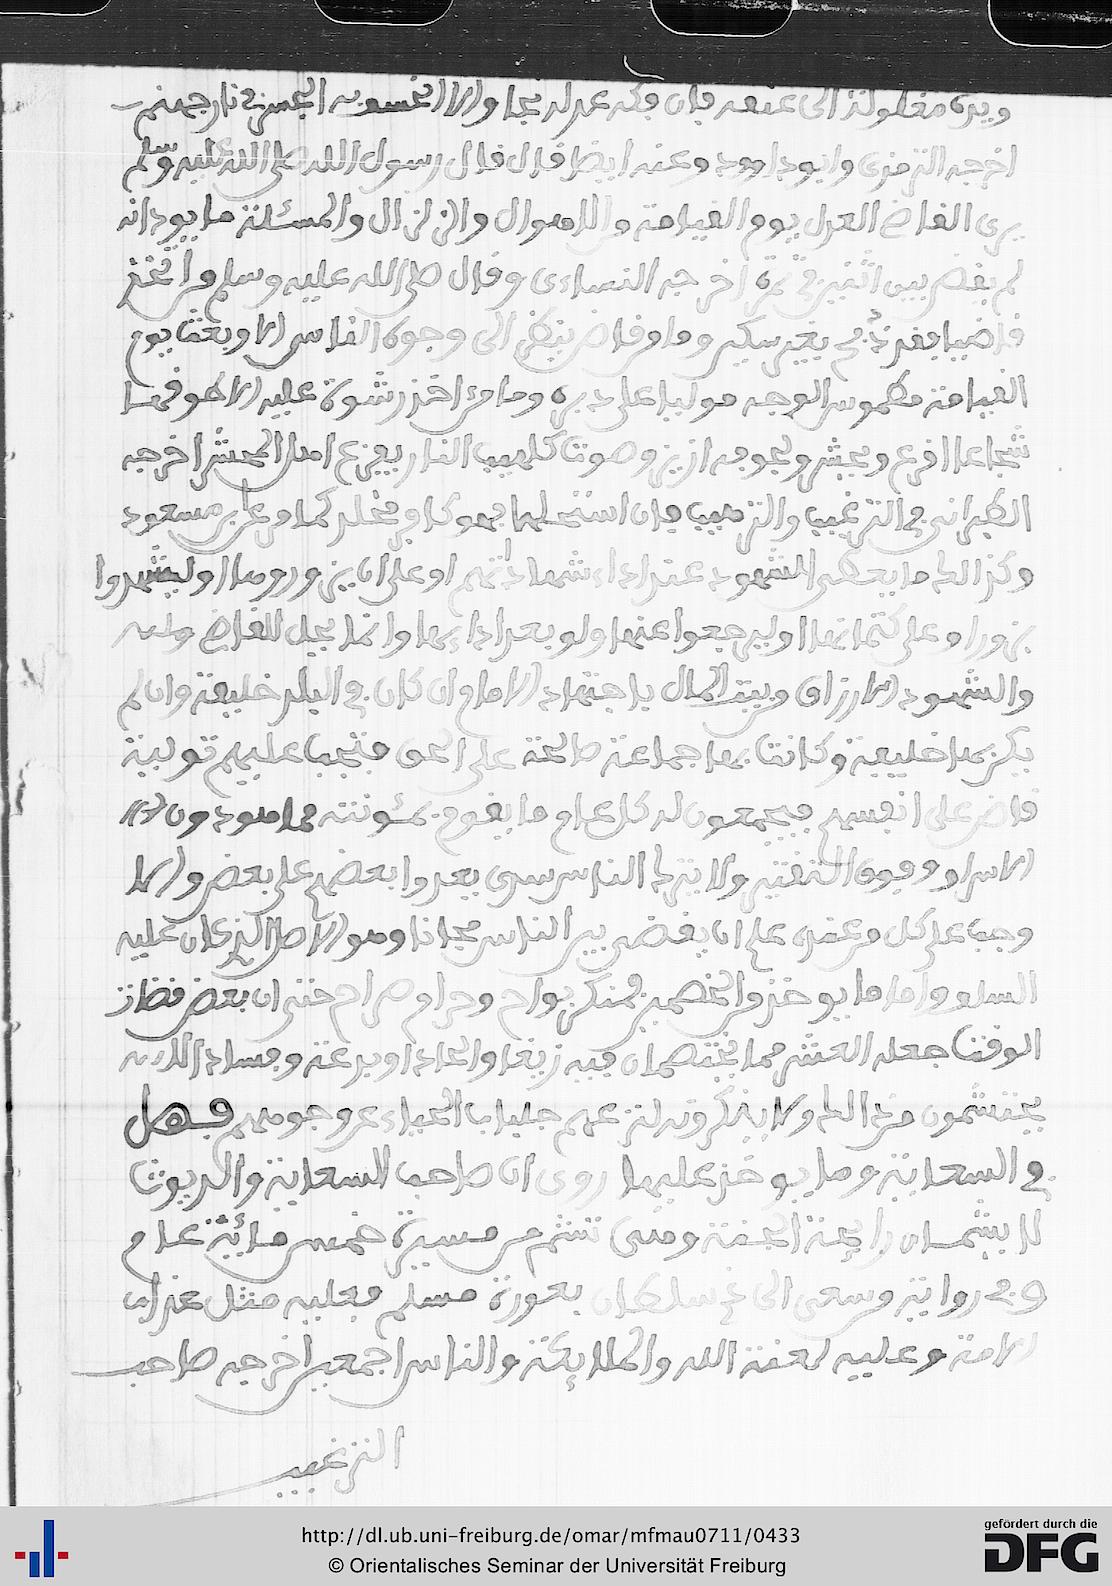 ويده مغلولة الى عنقه فان فكه عدله نجا والا انخسف به الجسر في نار جهنم
اخرجه الترمذي وابو داوود وعنه ايضا قال قال رسول الله صلى الله عليه وسلم
يرى القاضي العدل يوم القيامة والاهوال والزلزال والمسئلة ما يود انه
لم يقض بين اثنين في تمرة اخرجه النساءي وقال صلى الله عليه وسلم من اتخذ
قاضيا فقد ذبح بغير سكين وما من قاض ينظر الى وجوه الناس الا وبعث يوم
القيامة مطموس الوجه موليا على دبره وما من اخذ رشوة عليه الا طوقها
شجاعا اقرع ويحشر ولجوفه ازيز وصوت كلهيب النار يفزع اهل المحشر اخرجه
الطبراني في الترغيب والترهيب فان استحلها فهو كافر مخلد كما عن ابن مسعود
وكذالك ما يعطى الشهود عند اداء شهادتهم او على ان يزوروها او ليشهدوا
بزور او على كتمانها او ليرجعوا عنها ولو بعد اداءها وانما يحل للقاضي
والشهود الارزاق من بيت المال باجتهاد الامام ان كان في البلد خليفة وان لم
يكن بها خليفة وكانت بها جماعة صالحة على الحق فتجب عليهم تولية
قاض على انفسهم فيجمعون له كل عام ما يقوم بمئونته مما هو دون
الاسراف وفوق التقتير ولا يترك الناس سدى يعدوا بعضهم على بعض والا
وجب على كل من عنده علم ان يقضي بين الناس مجانا وهو الاصل الذي كان عليه
السلف واما ما يوخذ من الخصمين فمنكر بواح وحرام صراح حتى ان بعض قضاة
الوقت جعله العشر مما يختصمان فيه زيغا والحادا وبدعة وفسادا
يحتشمون من ذالك ولا ينكرونه لنزعهم جلباب الحياء عن وجوههم فصل
في السعاية وما يوخذ عليها روي ان صاحب السعاية والديوث
لا يشمان رايحة الجنة وهي تشم من مسيرة خمس مائة عام
وفي رواية من سعى الى ذي سلطان بعورة مسلم فعليه مثل عذاب
الامة وعليه لعنة الله والملائكة والناس اجمعين اخرجه صاحب
الترغيب
http://dl.ub.uni-freiburg.de/omar/mfmau0711/0433
© Orientalisches Seminar der Universität Freiburg
gefördert durch die
DFG